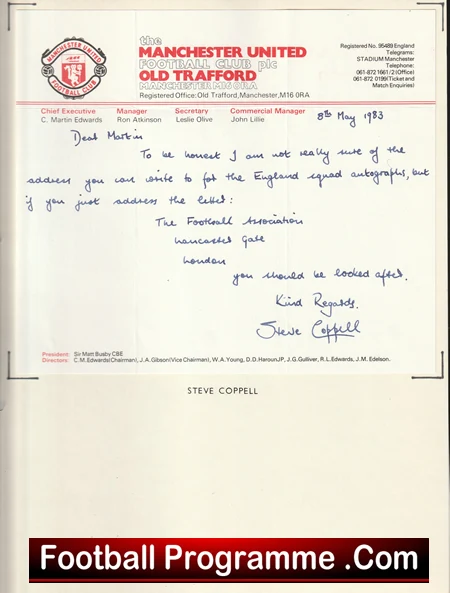 MANCHESTER UNITED
FOOTBALL CLUB
the
MANCHESTER UNITED
FOOTBALL CLUB plc
OLD TRAFFORD
MANCHESTER M16 0RA
Registered Office: Old Trafford, Manchester, M16 0RA
Registered No. 95489 England
Telegrams:
STADIUM Manchester
Telephone:
061-872 1661/2 (Office)
061-872 0199 (Ticket and
Match Enquiries)
Chief Executive Manager Secretary Commercial Manager
C. Martin Edwards Ron Atkinson Leslie Olive John Lillie
8th May 1983
Dear Martin
To be honest I am not really sure of the
address you can write to for the England squad autographs, but
if you just address the letter:
The Football Association
Lancaster Gate
London
you should be looked after.
Kind Regards.
Steve Coppell
President: Sir Matt Busby CBE
Directors: C.M.Edwards(Chairman), J.A.Gibson(Vice Chairman), W.A.Young, D.D.Haroun JP, J.G.Gulliver, R.L.Edwards, J.M.Edelson.
STEVE COPPELL
Football Programme .Com